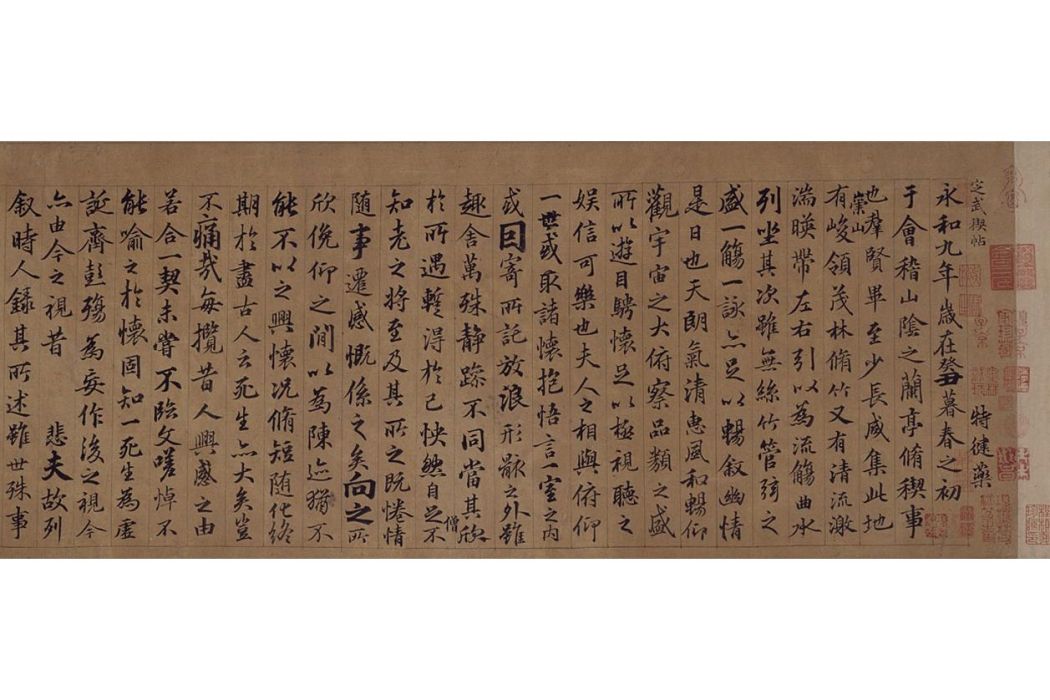 定武禊帖
特健藥
永和九年歲在癸丑暮春之初
于會稽山陰之蘭亭脩稧事
也羣賢畢至少長咸集此地
有崇山峻領茂林脩竹又有清流激
湍暎帶左右引以為流觴曲水
列坐其次雖無絲竹管弦之
盛一觴一詠亦足以暢敘幽情
是日也天朗氣清惠風和暢仰
觀宇宙之大俯察品類之盛
所以遊目騁懷足以極視聽之
娛信可樂也夫人之相與俯仰
一世或取諸懷抱悟言一室之内
或因寄所託放浪形骸之外雖
趣舍萬殊静躁不同當其欣
僧
於所遇蹔得於己怏然自足不
知老之將至及其所之既惓情
随事遷感慨係之矣向之所
欣俛仰之閒以為陳迹猶不
能不以之興懷況脩短随化終
期於盡古人云死生亦大矣豈
不痛哉每攬昔人興感之由
若合一契未嘗不臨文嗟悼不
能喻之於懷固知一死生為虛
誕齊彭殤為妄作後之視今
亦由今之視昔 悲夫故列
叙時人錄其所述雖世殊事